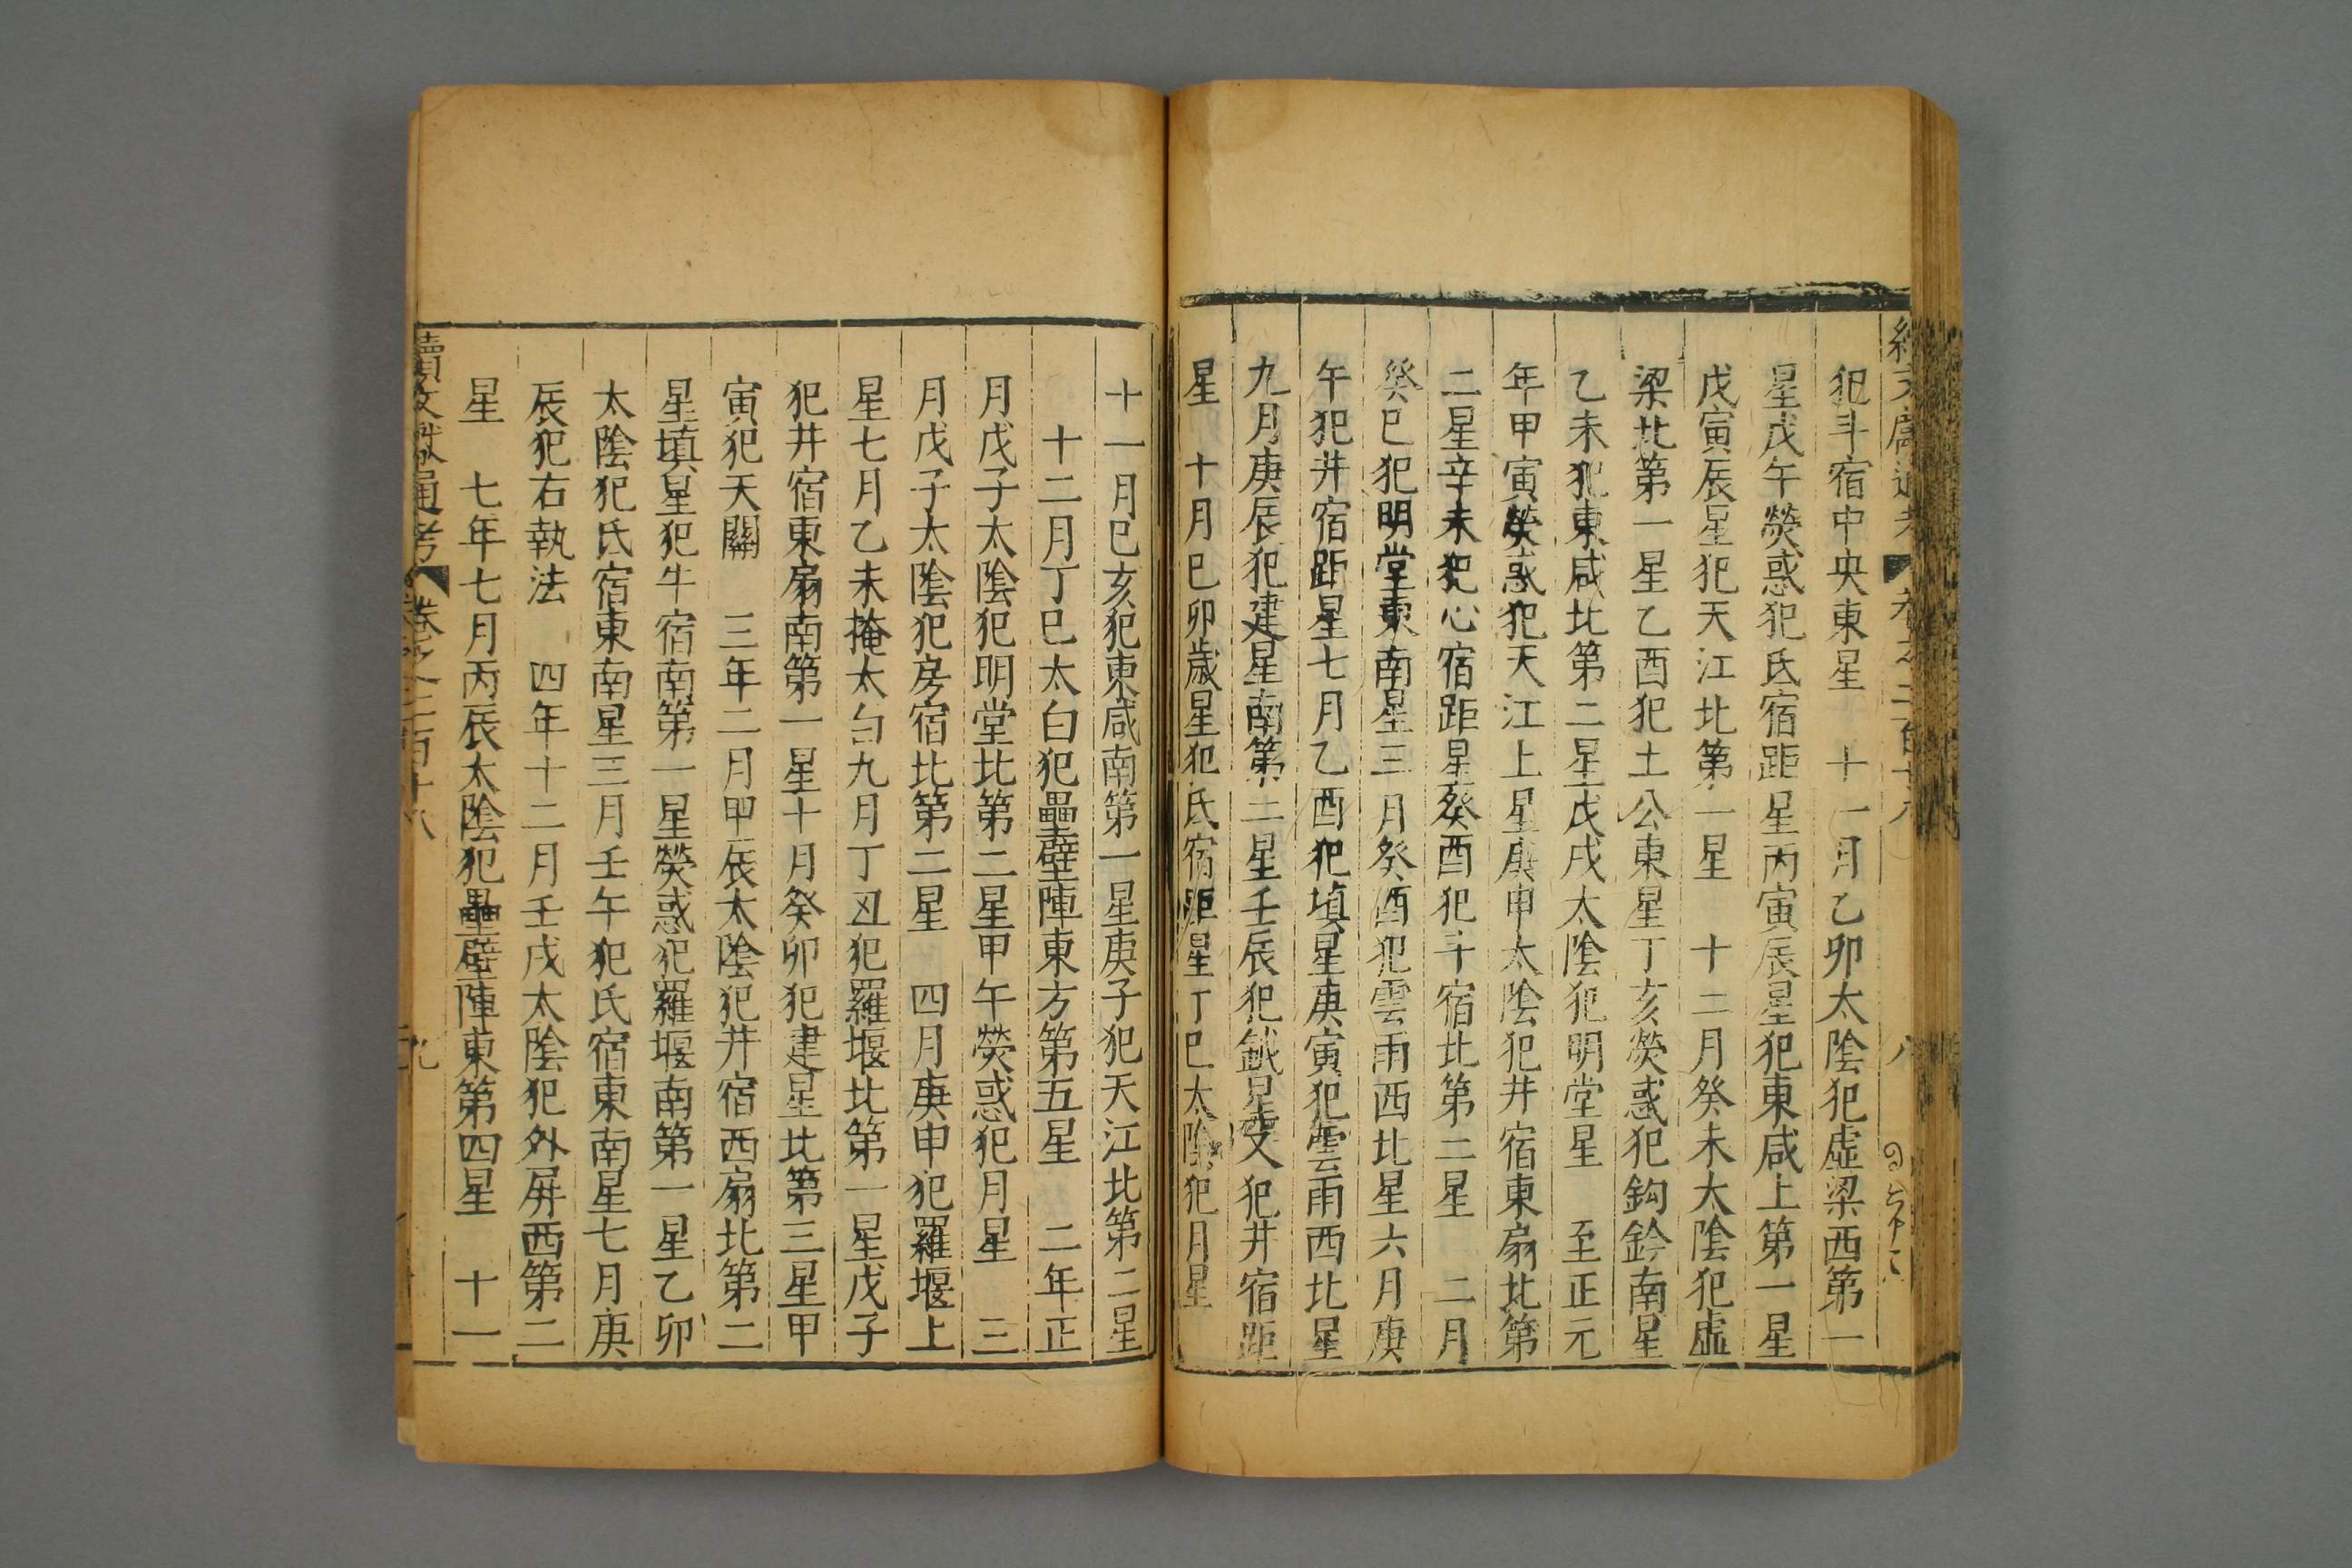 犯斗宿中央東星　十一月乙卯太陰犯虛梁西第一
星戊午熒惑犯氐宿距星丙寅辰星犯東咸上第一星
戊寅辰星犯天江北第一星　十二月癸未太陰犯虛
梁北第一星乙酉犯土公東星丁亥熒惑犯鈎鈐南星
乙未犯東咸北第二星戊戌太陰犯明堂星　至正元
年甲寅熒惑犯天江上星庚申太陰犯井宿東扇北第
二星辛未犯心宿距星癸酉犯斗宿北第二星　二月
癸巳犯明堂東南星三月癸酉犯雲雨西北星六月庚
午犯井宿距星七月乙酉犯填星庚寅犯雲雨西北星
九月庚辰犯建星南第二星壬辰犯鉞星又犯井宿距
星　十月巳卯歲星犯氐宿距星丁巳太陰犯月星
十一月巳亥犯東咸南第一星庚子犯天江北第二星
十二月丁巳太白犯壘壁陣東方第五星　二年正
月戊子太陰犯明堂北第二星甲午熒惑犯月星　三
月戊子太陰犯房宿北第二星　四月庚申犯羅堰上
星七月乙未掩太白九月丁丑犯羅堰北第一星戊子
犯井宿東扇南第一星十月癸卯犯建星北第三星甲
寅犯天關　三年二月甲辰太陰犯井宿西扇北第二
星填星犯牛宿南第一星熒惑犯羅堰南第一星乙卯
太陰犯氐宿東南星三月壬午犯氐宿東南星七月庚
辰犯右執法　四年十二月壬戌太陰犯外屏西第二
星　七年七月丙辰太陰犯壘壁陣東第四星　十一
續文獻通考　卷之二百十八　九